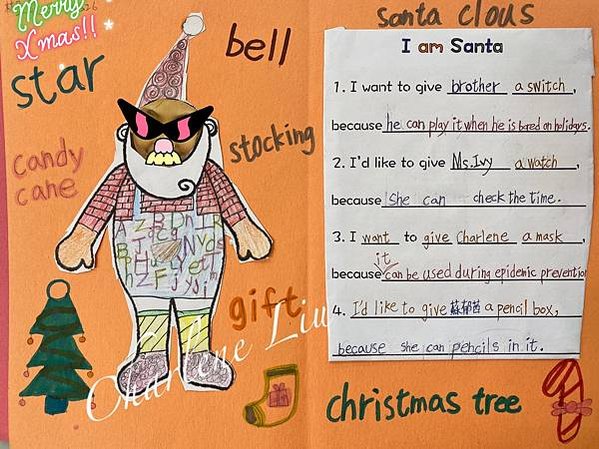 Merry
Xmas!!
star
bell
candy
cane
stocking
gift
Charlene Liu
santa clous
I am Santa
1. I want to give brother a switch,
because he can play it when he is bored on holidays.
2. I'd like to give Ms. Ivy a watch,
because she can check the time.
3. I want to give Charlene a mask,
because it can be used during epidemic prevention
4. I'd like to give a pencil box,
because she can pencils in it.
christmas tree